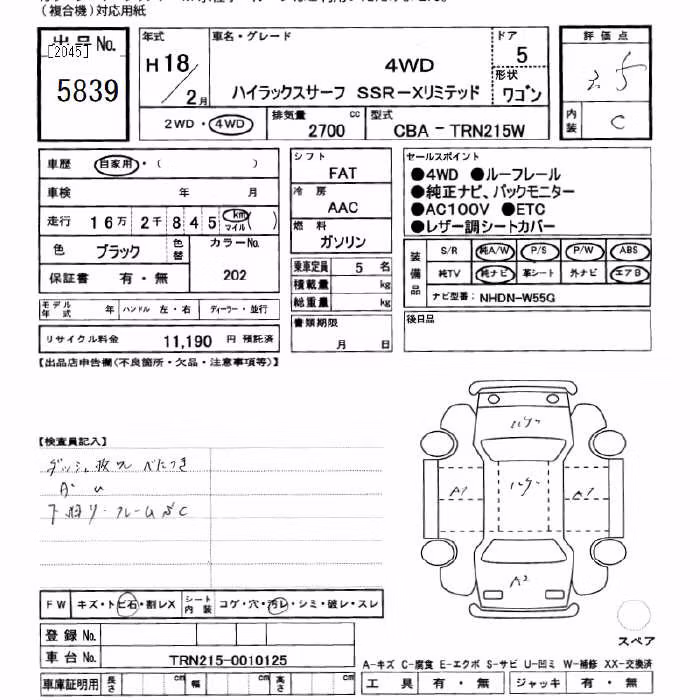 (複合機)対応用紙
出品No.
[2045]
5839
年式
H18
2月
車名・グレード
4WD
ハイラックスサーフ SSR-Xリミテッド
ドア
5
形状
ワゴン
2WD・4WD
排気量
2700 cc
型式
CBA-TRN215W
評価点
3.5
内装
C
車歴 自家用・( )
車検 年 月
走行 16万2千845 km マイル ( )
色 ブラック 色替
カラーNo.
202
保証書 有・無
モデル年式 年 ハンドル 左・右 ディーラー・並行
リサイクル料金 11,190 円 預託済
シフト
FAT
冷房
AAC
燃料
ガソリン
乗車定員 5 名
積載量 kg
総重量 kg
書類期限
月 日
セールスポイント
●4WD ●ルーフレール
●純正ナビ、バックモニター
●AC100V ●ETC
●レザー調シートカバー
装備品
S/R 純A/W P/S P/W ABS
純TV 純ナビ 革シート 外ナビ エアB
ナビ型番: NHDN-W55G
後日品
【出品店申告欄(不良箇所・欠品・注意事項等)】
【検査員記入】
ダッシュ
べたつき
A・U
下廻り・フレームSC
A1
A1
A2
スペア
FW キズ・トビ石・割レX シート内装 コゲ・穴・汚レ・シミ・破レ・スレ
登録No.
車台No. TRN215-0010125
車庫証明用 長さ cm 幅 cm 高さ cm
A-キズ C-腐食 E-エクボ S-サビ U-凹ミ W-補修 XX-交換済
工具 有・無 ジャッキ 有・無